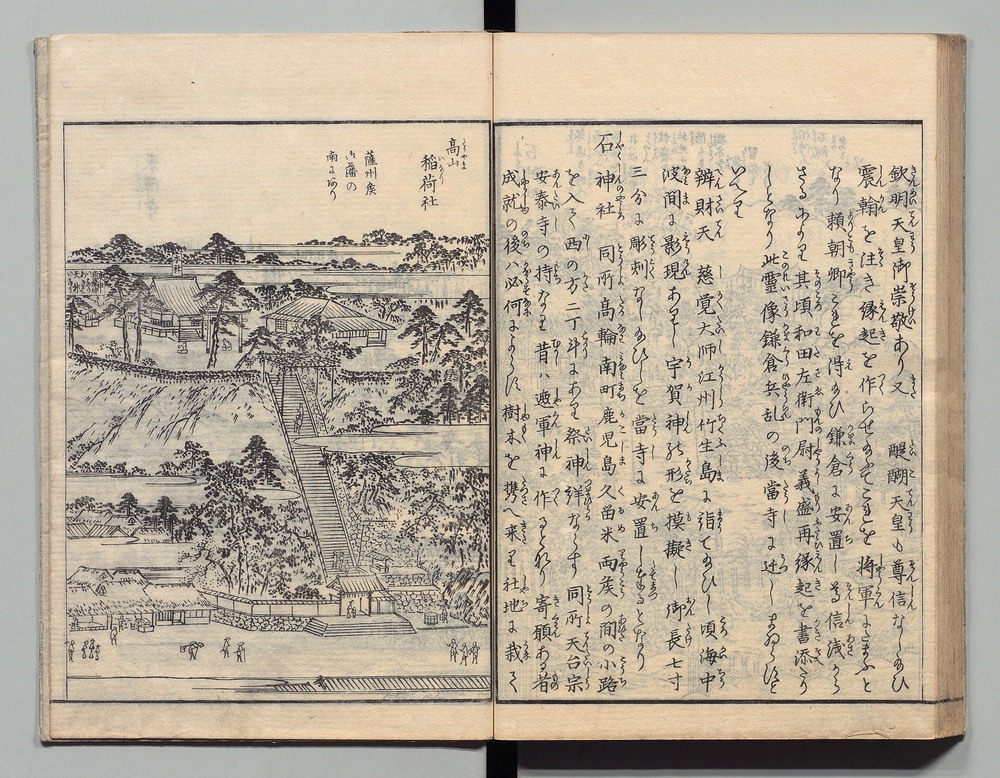 欽明天皇御崇敬あり又　醍醐天皇も尊信なし給ひ
震翰を注き縁起を作らせ給ふてこれを将軍に給ふと
なり頼朝卿これを得給ひ鎌倉に安置し尊信浅から
さるなり其頃和田左衛門尉義盛再縁起を書添たり
しとなり此霊像鎌倉兵乱の後當寺に迁しまゐらすと
いへり
辨財天　慈覚大師江州竹生島に詣て給ひし頃海中
波間に影現あり宇賀神の形を摸擬し御長七寸
三分に彫刻なし給ひしを當寺に安置し奉るとなり
石神社　同所高輪南町鹿児島久留米両侯の間の小路
を入て西の方二丁斗にあり祭神詳ならす同所天台宗
安泰寺の持なり昔ハ遮軍神に作るとなり寄願ある者
成就の後ハ必何によらす樹木を携へ来り社地に栽て
高山
稲荷社
薩州侯
御藩の
南にあり